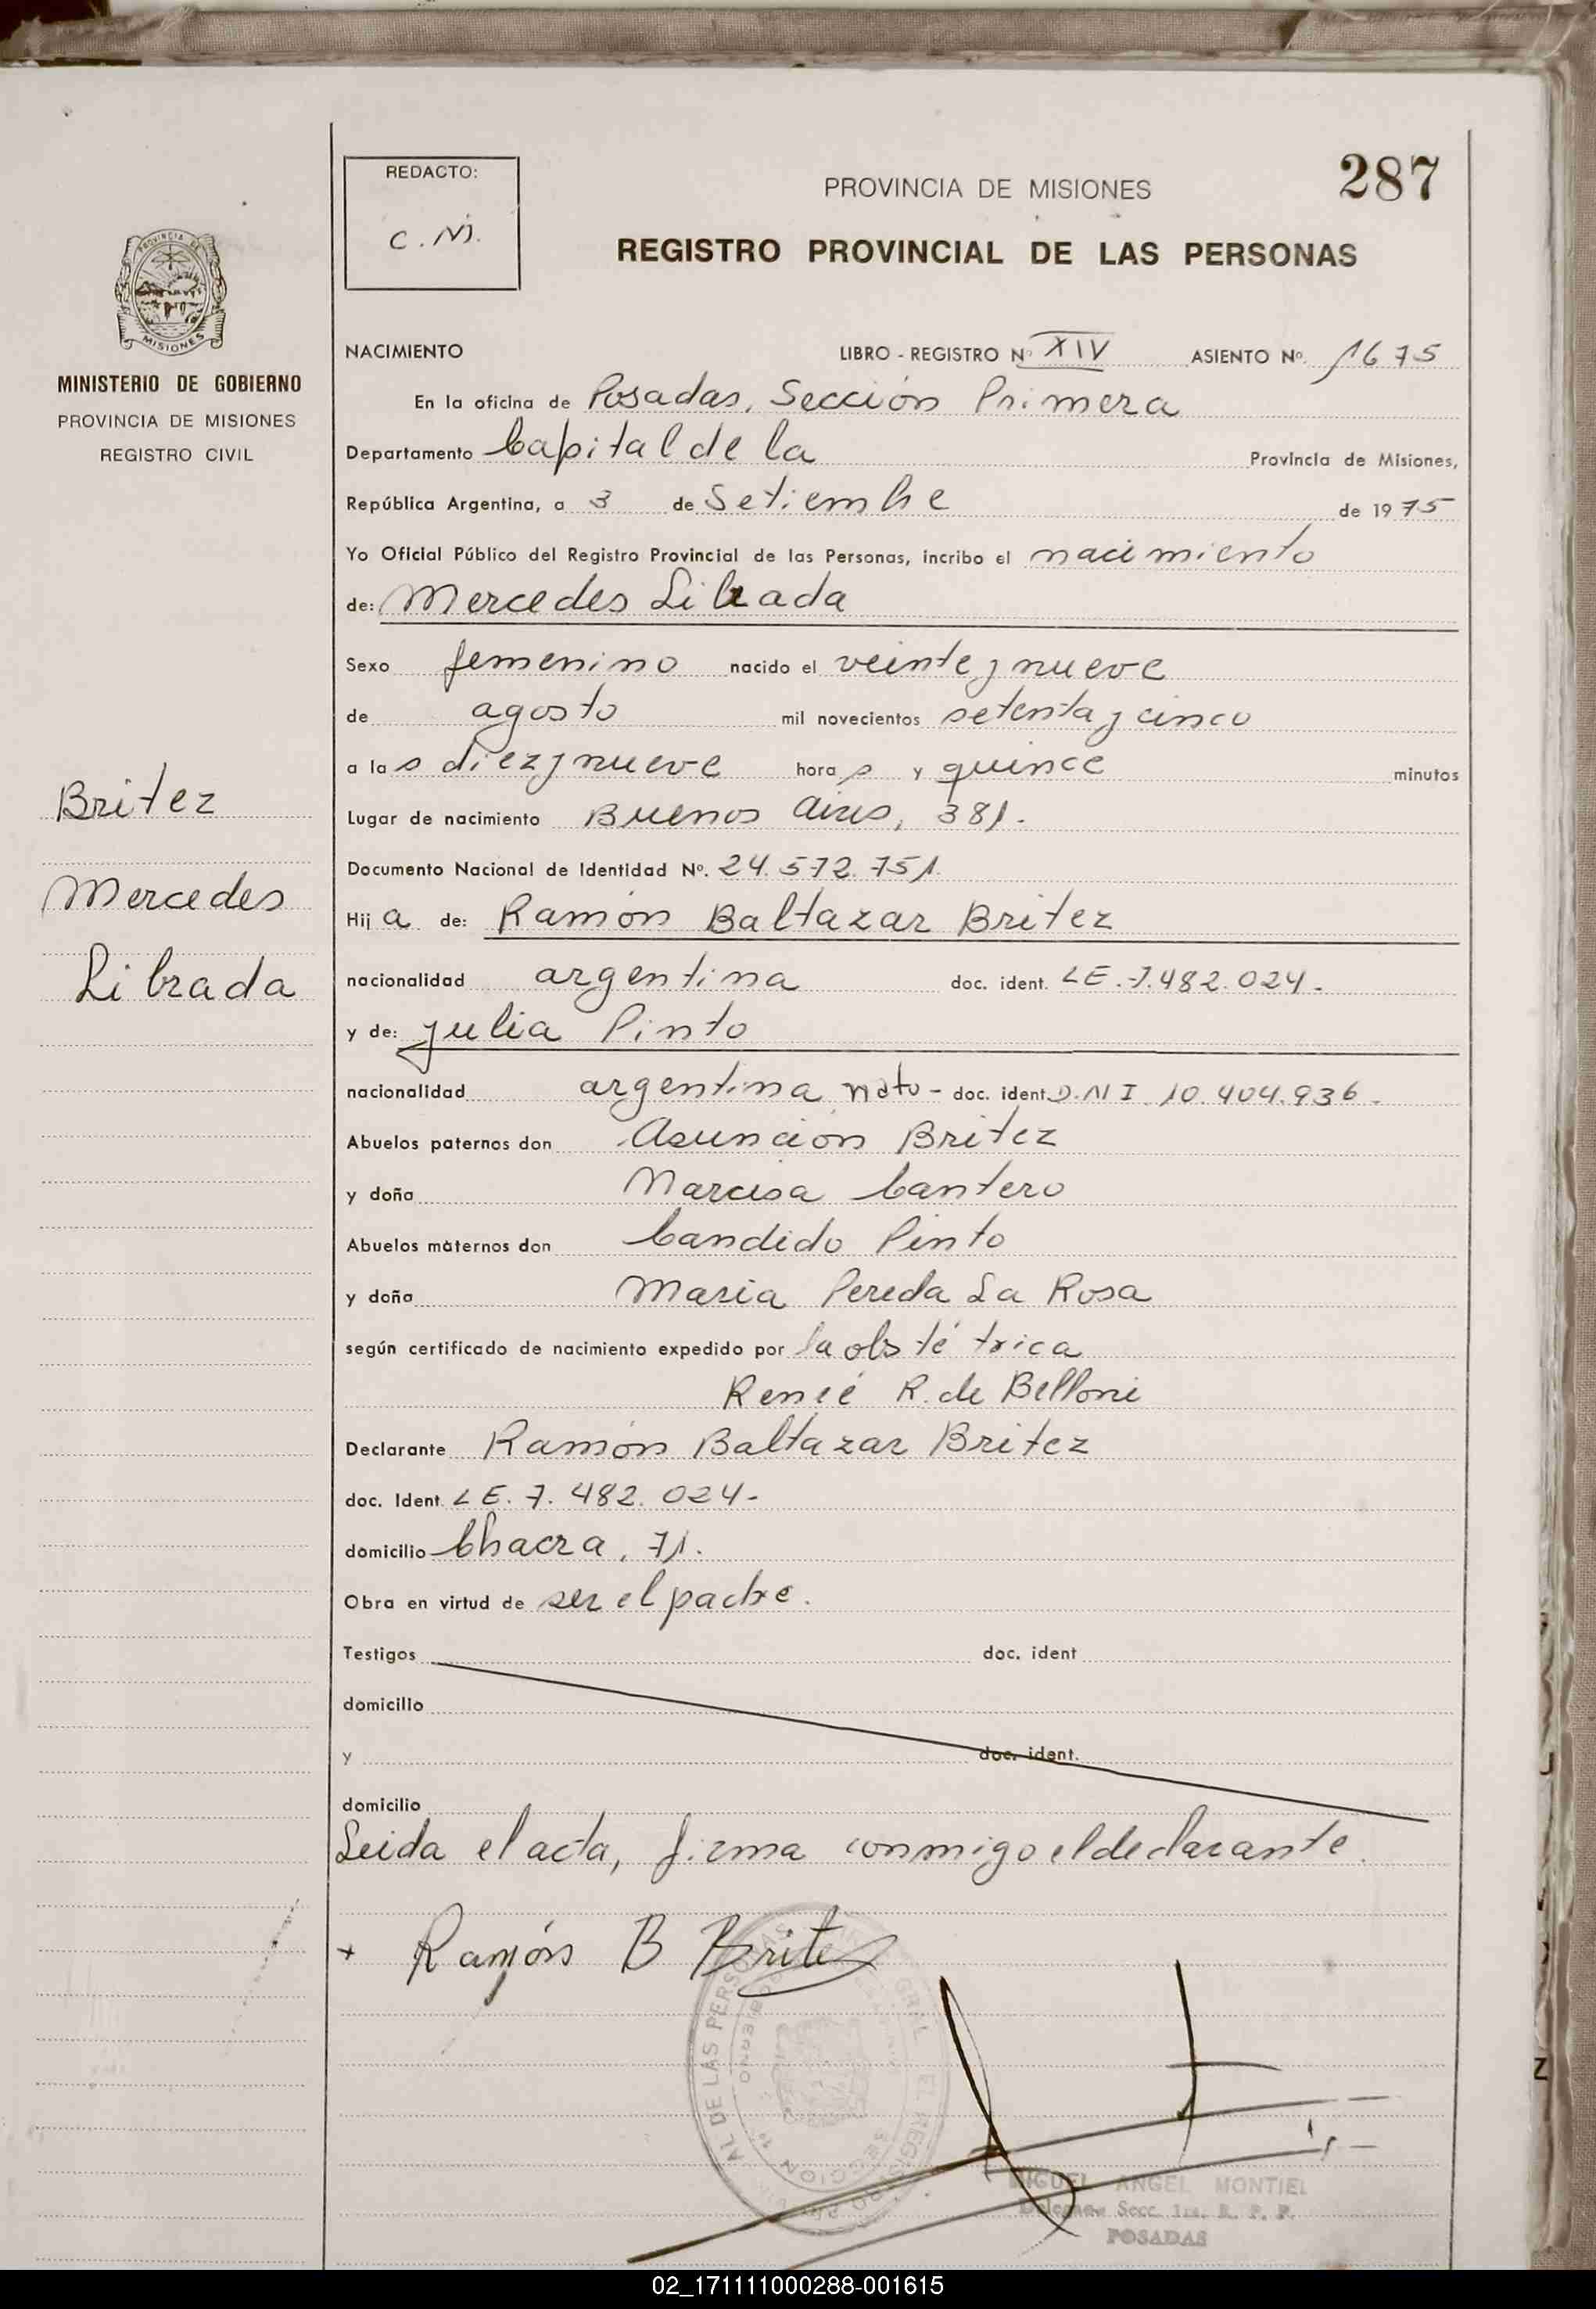 287
REDACTO:
C.M.
PROVINCIA DE MISIONES
REGISTRO PROVINCIAL DE LAS PERSONAS
PROVINCIA DE
MISIONES
MINISTERIO DE GOBIERNO
PROVINCIA DE MISIONES
REGISTRO CIVIL
Britez
Mercedes
Librada
NACIMIENTO LIBRO - REGISTRO Nº XIV ASIENTO Nº. 1675
En la oficina de Posadas, Sección Primera
Departamento Capital de la Provincia de Misiones,
República Argentina, a 3 de Setiembre de 1975
Yo Oficial Público del Registro Provincial de las Personas, incribo el nacimiento
de: Mercedes Librada
Sexo femenino nacido el veinte y nueve
de agosto mil novecientos setenta y cinco
a las diez y nueve horas y quince minutos
Lugar de nacimiento Buenos Aires, 381.
Documento Nacional de Identidad Nº. 24.572.751.
Hija de: Ramón Baltazar Britez
nacionalidad argentina doc. ident. LE.7.482.024.
y de: Julia Pinto
nacionalidad argentina nato - doc. ident D.N I. 10.404.936.
Abuelos paternos don Asunción Britez
y doña Narcisa Cantero
Abuelos maternos don Candido Pinto
y doña Maria Pereda La Rosa
según certificado de nacimiento expedido por la obstétrica
Reneé R. de Belloni
Declarante Ramón Baltazar Britez
doc. Ident. LE. 7. 482. 024-
domicilio Chacra, 71.
Obra en virtud de ser el padre.
Testigos doc. ident
domicilio
y doc. ident.
domicilio
Leida el acta, firma conmigo el declarante.
+ Ramón B Britez
MIGUEL ANGEL MONTIEL
Delegado Secc. 1ra. R. P. P.
POSADAS
02_171111000288-001615